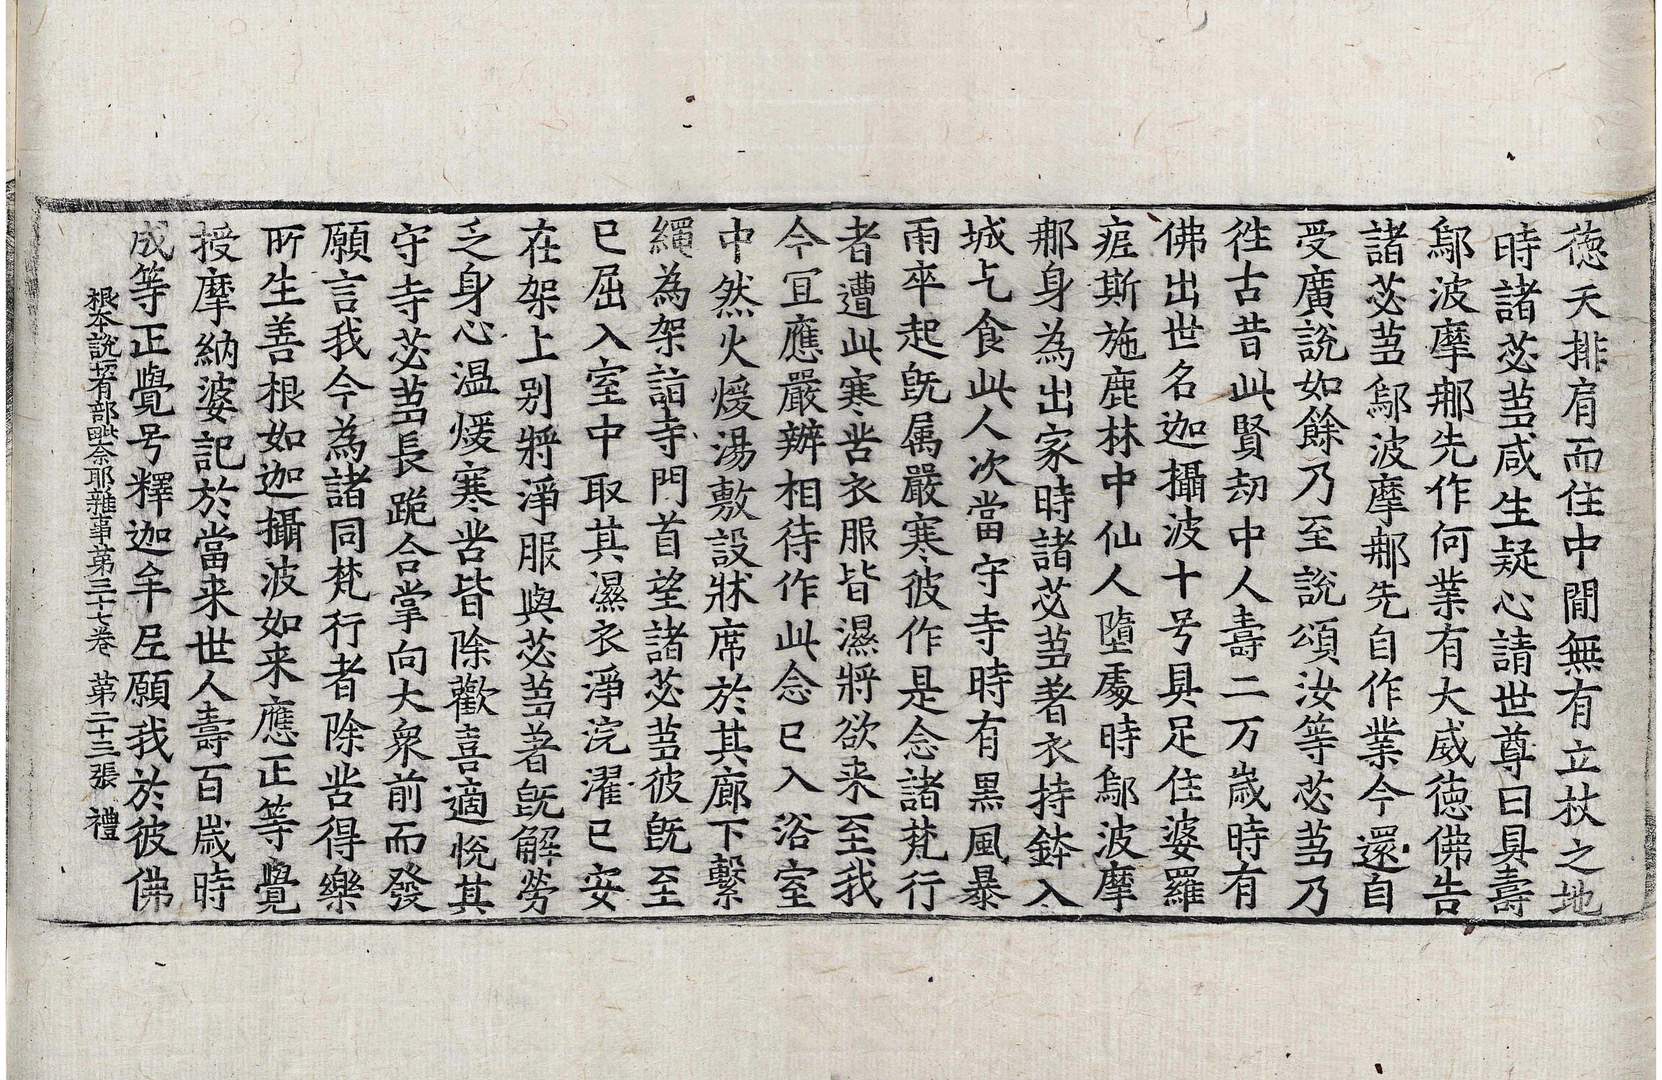 德天排肩而住中間無有立杖之地
時諸苾芻咸生疑心請世尊曰具壽
鄔波摩那先作何業有大威德佛告
諸苾芻鄔波摩那先自作業今還自
受廣說如餘乃至說頌汝等苾芻乃
徃古昔此賢劫中人壽二万歲時有
佛出世名迦攝波十号具足住婆羅
痆斯施鹿林中仙人墮處時鄔波摩
那身為出家時諸苾芻著衣持鉢入
城乞食此人次當守寺時有黑風暴
雨卒起旣属嚴寒彼作是念諸梵行
者遭此寒苦衣服皆濕將欲来至我
今冝應嚴辦相待作此念已入浴室
中然火煖湯敷設牀席於其廊下繫
繩為架詣寺門首望諸苾芻彼旣至
已屈入室中取其濕衣淨浣濯已安
在架上别將淨服與苾芻著旣解勞
乏身心温煖寒苦皆除歡喜適悅其
守寺苾芻長跪合掌向大衆前而發
願言我今為諸同梵行者除苦得樂
所生善根如迦攝波如来應正等覺
授摩納婆記於當来世人壽百歲時
成等正覺号釋迦牟尼願我於彼佛
根本說一切有部毗奈耶雜事第三十七卷 第二十三張 禮